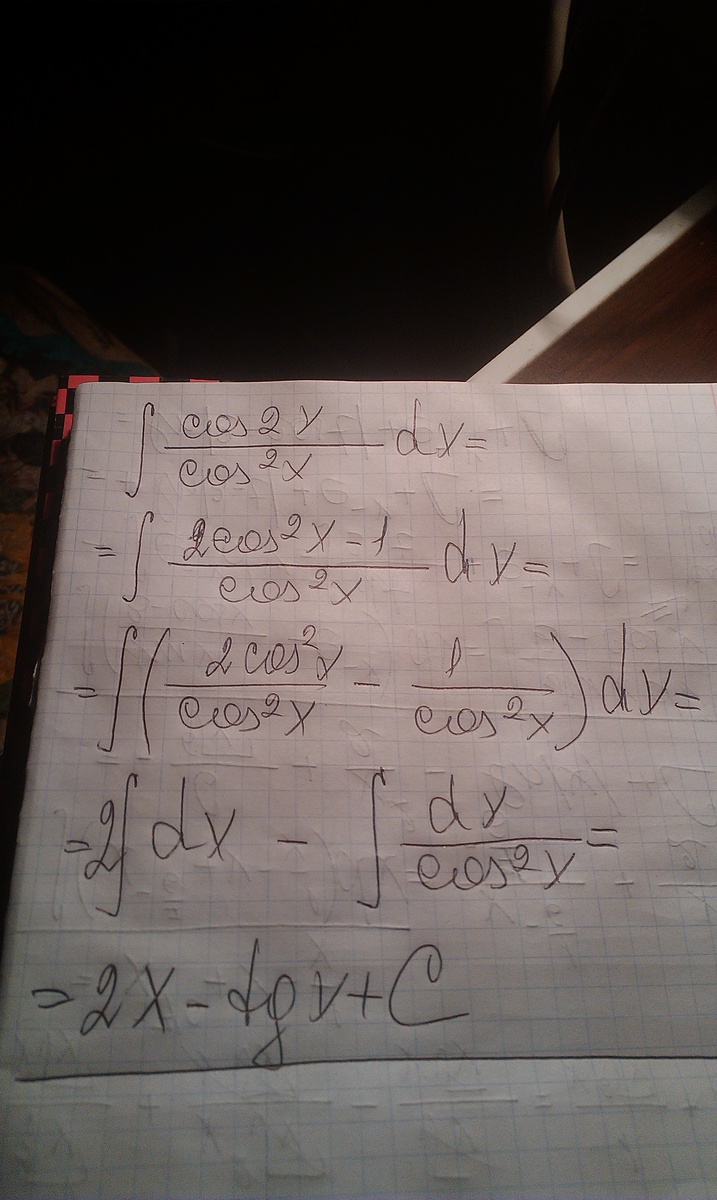 ∫ cos2x / cos²x dx =
= ∫ (2cos²x - 1) / cos²x dx =
= ∫ (2cos²x / cos²x - 1 / cos²x) dx =
= 2∫ dx - ∫ dx / cos²x =
= 2x - tg x + C